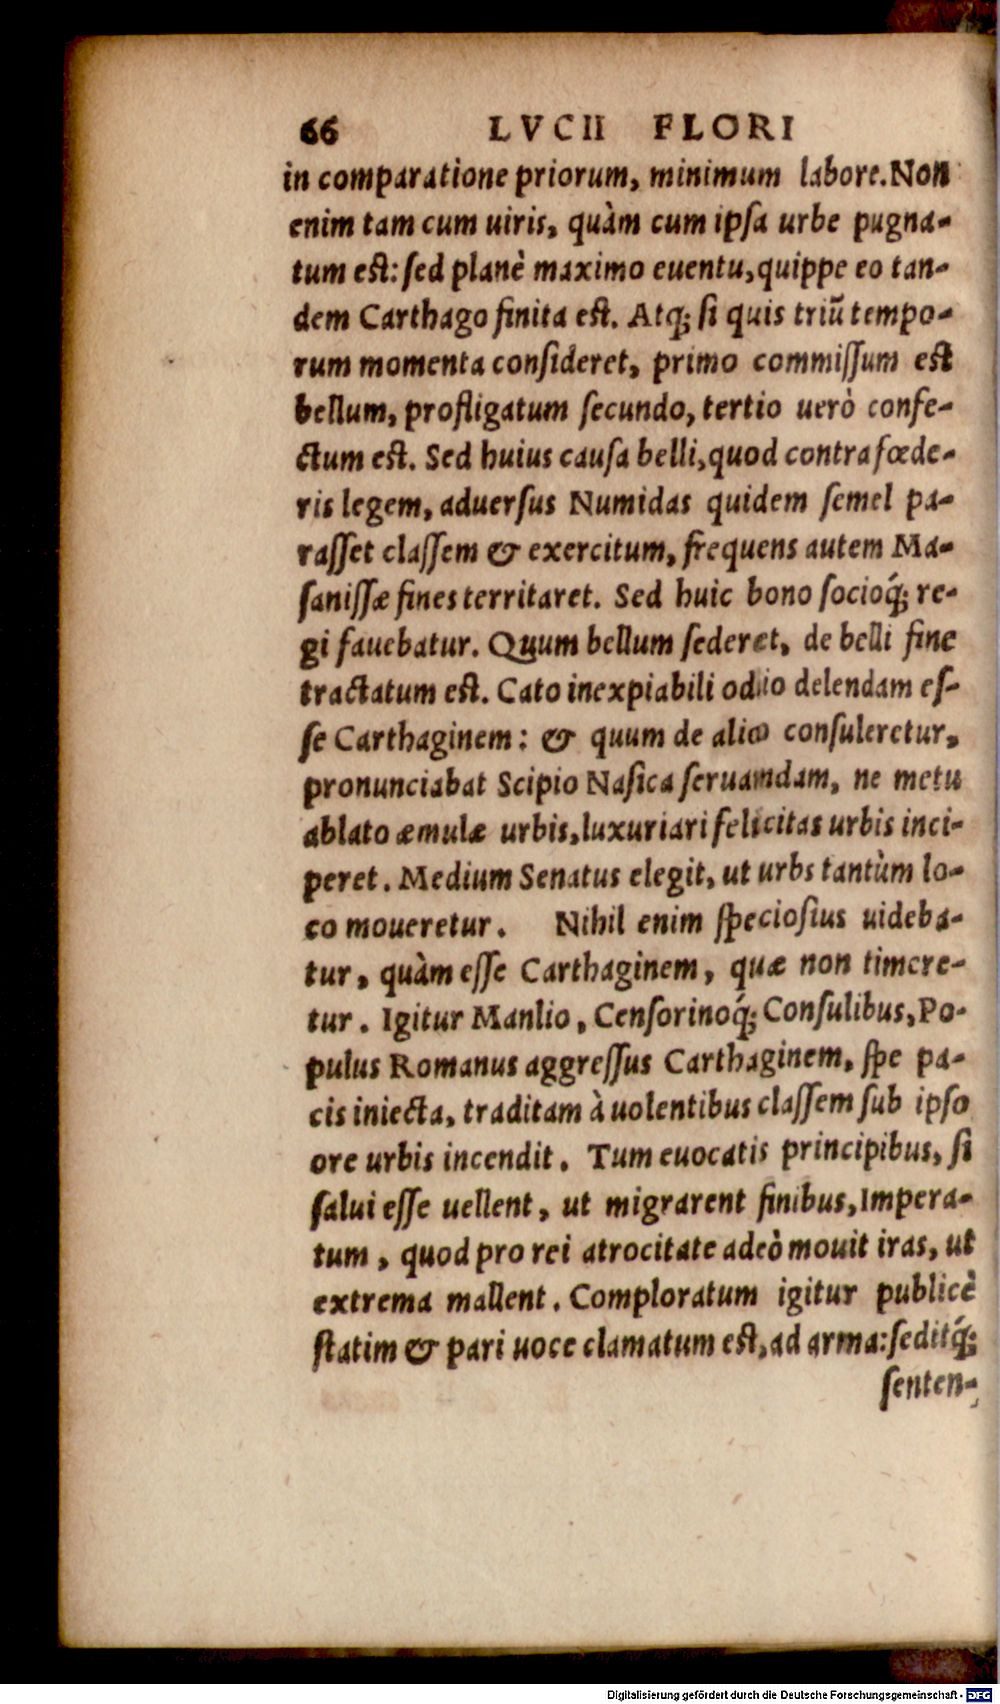 66 LVCII FLORI
in comparatione priorum, minimum labore. Non
enim tam cum uiris, quàm cum ipſa urbe pugna-
tum est: ſed planè maximo euentu, quippe eo tan-
dem Carthago finita est. Atq; ſi quis triũ tempo-
rum momenta conſideret, primo commiſſum est
bellum, profligatum ſecundo, tertio uerò confe-
ctum est. Sed huius cauſa belli, quod contra fœde-
ris legem, aduerſus Numidas quidem ſemel pa-
raſſet claſſem & exercitum, frequens autem Ma-
ſaniſſæ fines territaret. Sed huic bono ſocioq́; re-
gi fauebatur. Quum bellum ſederet, de belli fine
tractatum est. Cato inexpiabili odio delendam eſ-
ſe Carthaginem: & quum de alio conſuleretur,
pronunciabat Scipio Naſica ſeruamdam, ne metu
ablato æmulæ urbis, luxuriari felicitas urbis inci-
peret. Medium Senatus elegit, ut urbs tantùm lo-
co moueretur. Nihil enim ſpecioſius uideba-
tur, quàm eſſe Carthaginem, quæ non timere-
tur. Igitur Manlio, Cenſorinoq́; Conſulibus, Po-
pulus Romanus aggreſſus Carthaginem, ſpe pa-
cis iniecta, traditam à uolentibus claſſem ſub ipſo
ore urbis incendit. Tum euocatis principibus, ſi
ſalui eſſe uellent, ut migrarent finibus, Impera-
tum, quod pro rei atrocitate adeò mouit iras, ut
extrema mallent. Comploratum igitur publicè
ſtatim & pari uoce clamatum est, ad arma: ſeditq́;
ſenten-
Digitalisierung gefördert durch die Deutsche Forschungsgemeinschaft - DFG